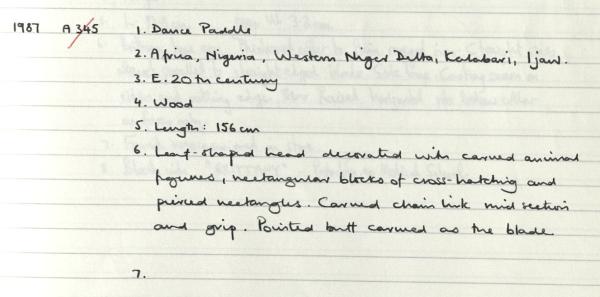 1987 A 345 1. Dance Paddle
2. Africa, Nigeria, Western Niger Delta, Kalabari, Ijaw.
3. E. 20th century
4. Wood
5. Length: 156cm
6. Leaf-shaped head decorated with carved animal
figures, rectangular blocks of cross-hatching and
pierced rectangles. Carved chain link mid section
and grip. Pointed butt carved as the blade
7.